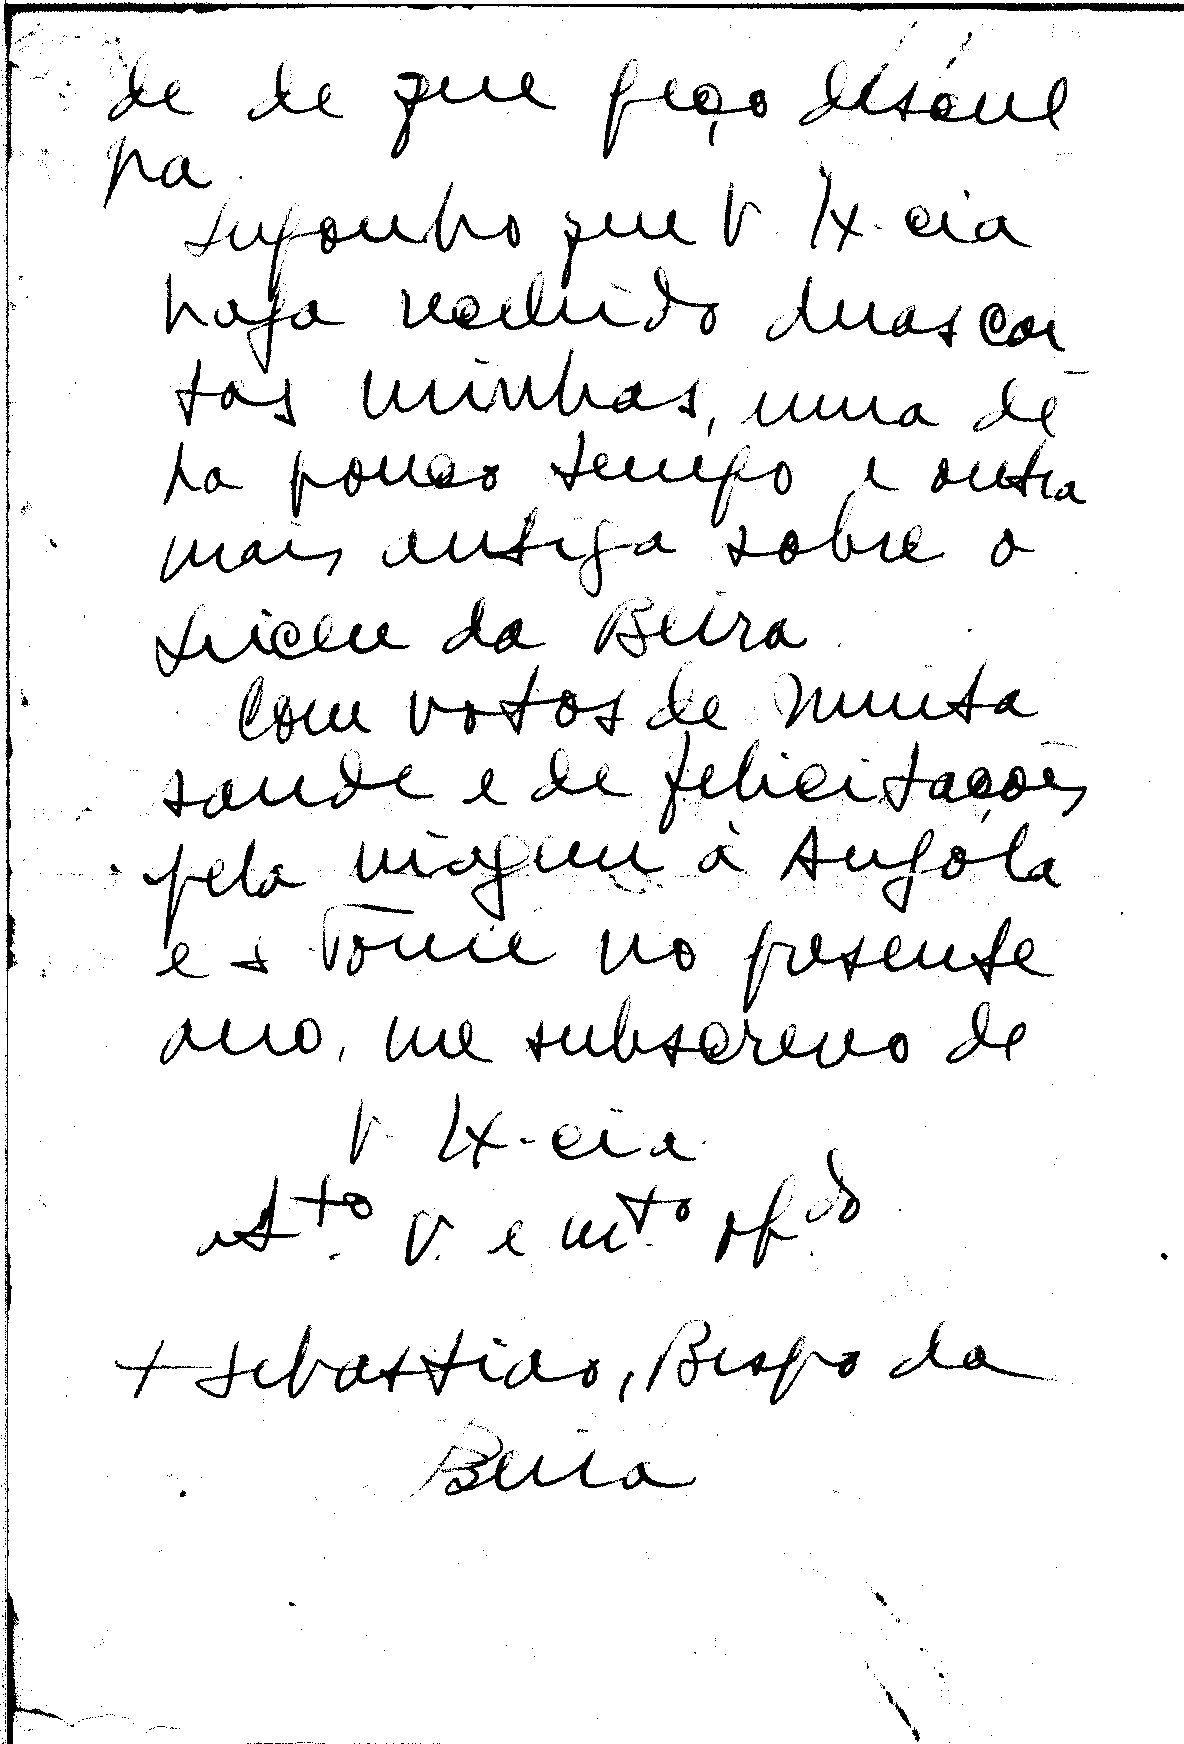 de de que peço descul
pa.
Suponho que V. Ex.cia
haja recebido duas car
tas minhas, uma de
ha pouco tempo e outra
mais antiga sobre o
Liceu da Beira.
Com votos de muita
saude e de felicitações
pela viagem à Angóla
e S. Tomé no presente
ano, me subscrevo de
V. Ex.cia
At.to V. e m.to ob.do
+ Sebastião, Bispo da
Beira